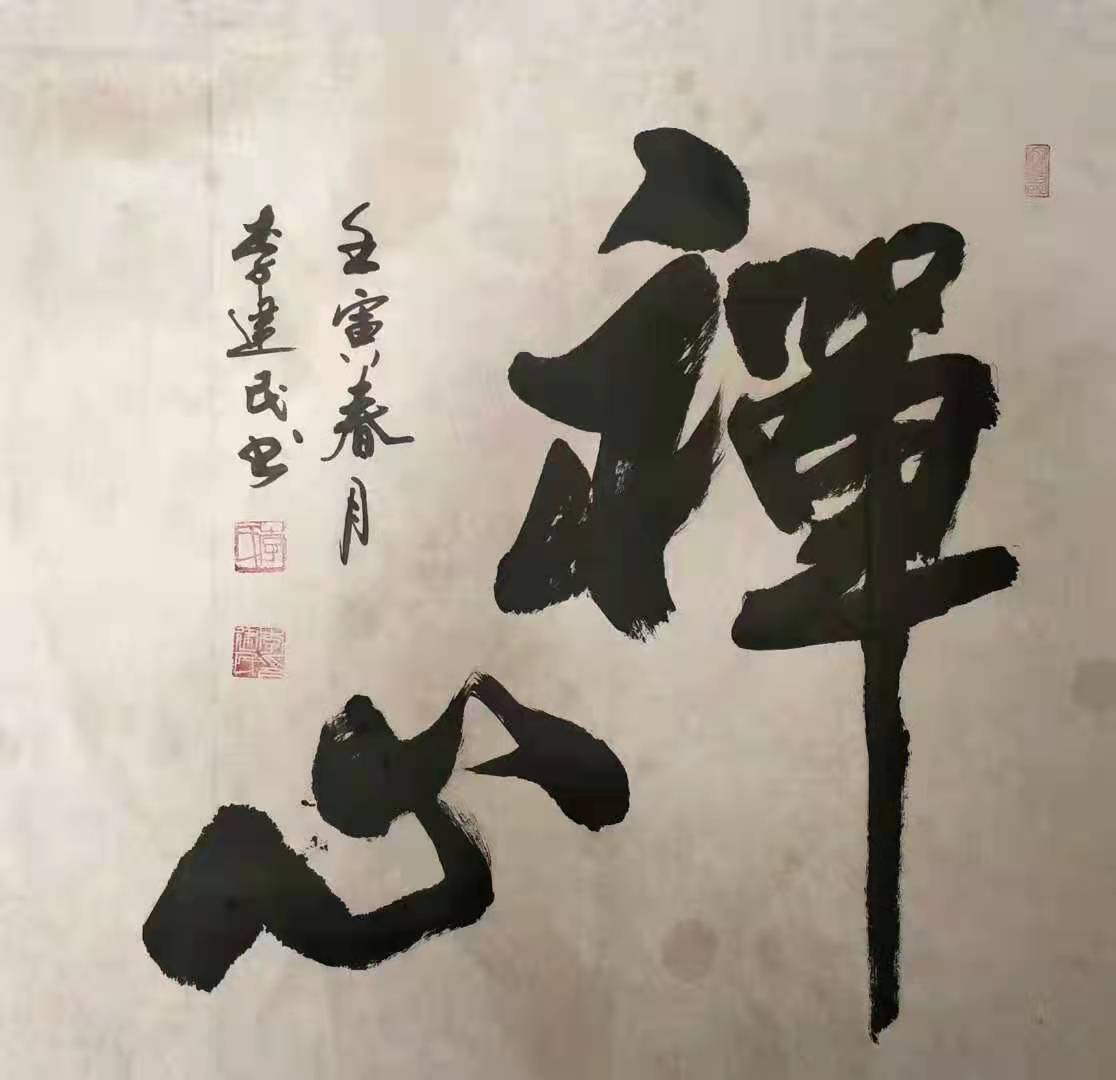 禪心
壬寅春月
李建民书